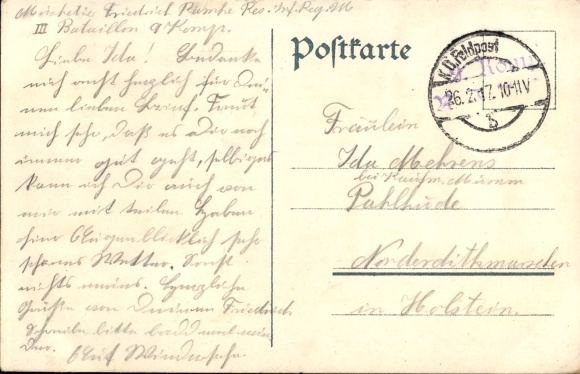 Friedrich Res. Inf. Reg.
III Bataillon 9 Komp.
Liebe Ida! Bedanke
mich recht herzlich für Dei-
nen lieben Brief. Freut
mich sehr, daß es Dir noch
immer gut geht, selbiges
kann ich Dir auch von
mir mit teilen. Haben
hier Augenblicklich sehr
schönes Wetter. Sonst
nichts neues. Herzliche
Grüße von Deinem Friedrich
Schreibe bitte bald mal wie-
der.
Auf Wiedersehn.
Postkarte
K.D. Feldpost
26.2.17. 10-11V
b
Fräulein
Ida Mehrens
bei Kaufm. Mumm
Pahlhude
Norderdithmarschen
in Holstein.